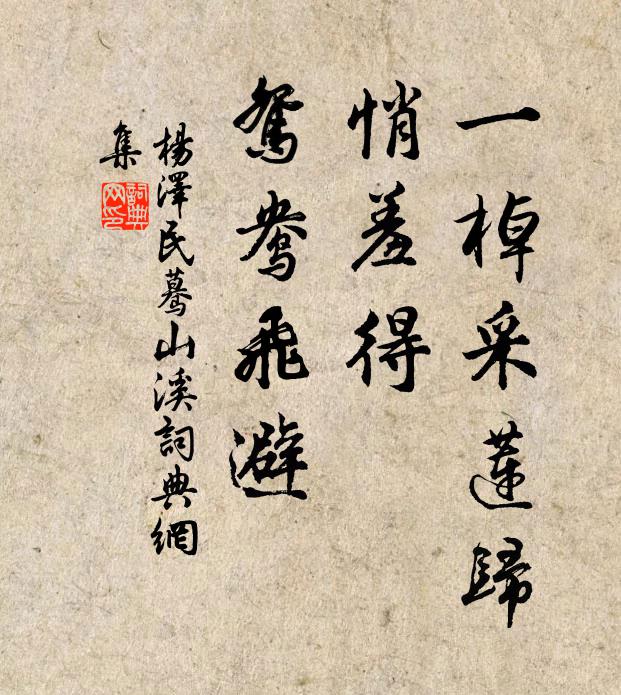 一棹采蓮歸
悄羞得
鴛鴦飛避
楊澤民驀山溪詞典網
集
詞典
网印